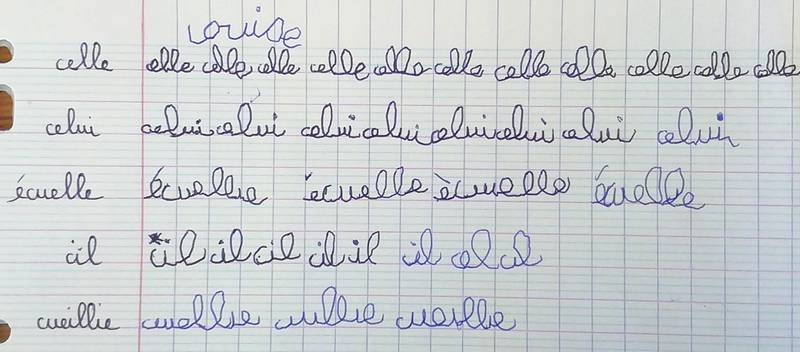 Louise
celle elle celle celle celle celle celle celle celle celle celle celle
celui celui celui celui celui celui celui celui celui
écuelle écuellie écuelle ècuelle écuelle
cil cil cil cil cil il il cl cil
cueillie cuellie cuillie cueille